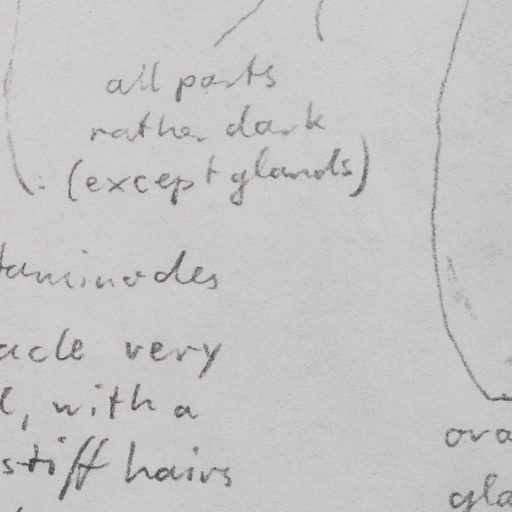 all parts
rather dark
(except glands)
taminodes
acle very
l, with a
stiff hairs
ova
gla